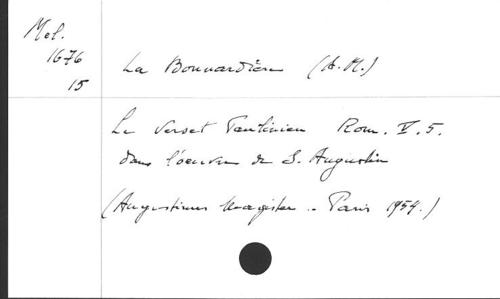 Mel.
1676
15
La Bonnardière (A. M.)
Le verset Paulinien Rom. V. 5.
dans l'oeuvre de S. Augustin
(Augustinus Magister.. Paris 1954.)